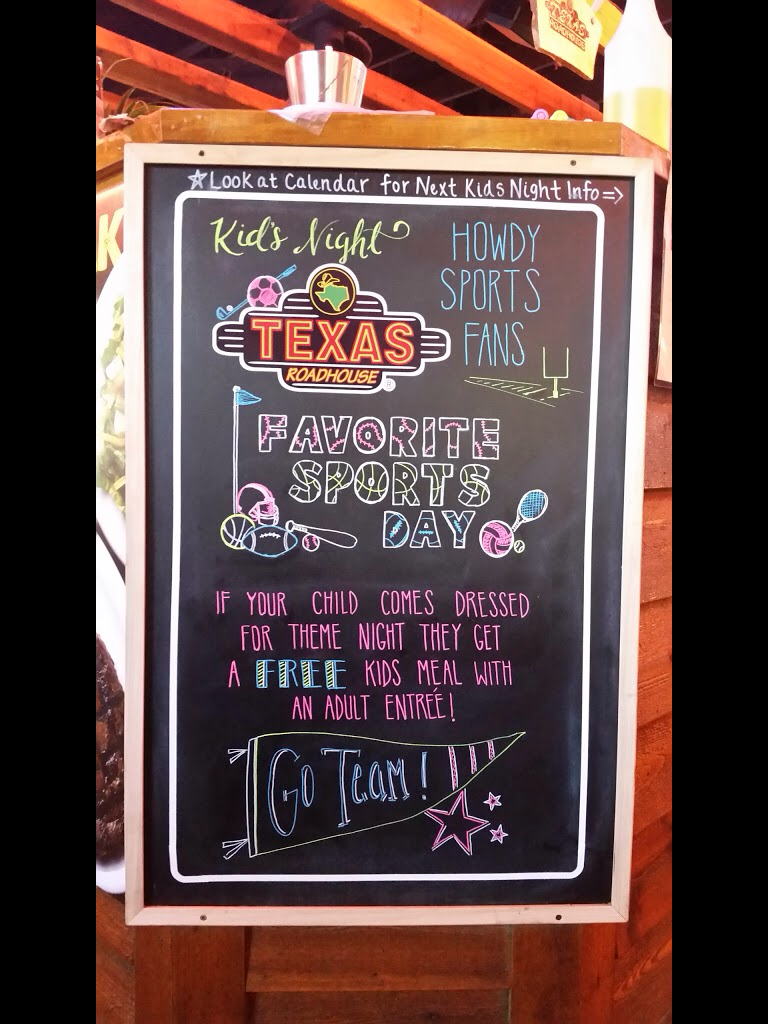 ★Look at Calendar for Next Kids Night Info⇒
Kid's Night
HOWDY
SPORTS
FANS
TEXAS
ROADHOUSE®
FAVORITE
SPORTS
DAY
IF YOUR CHILD COMES DRESSED
FOR THEME NIGHT THEY GET
A FREE KIDS MEAL WITH
AN ADULT ENTRÉE!
Go Team!